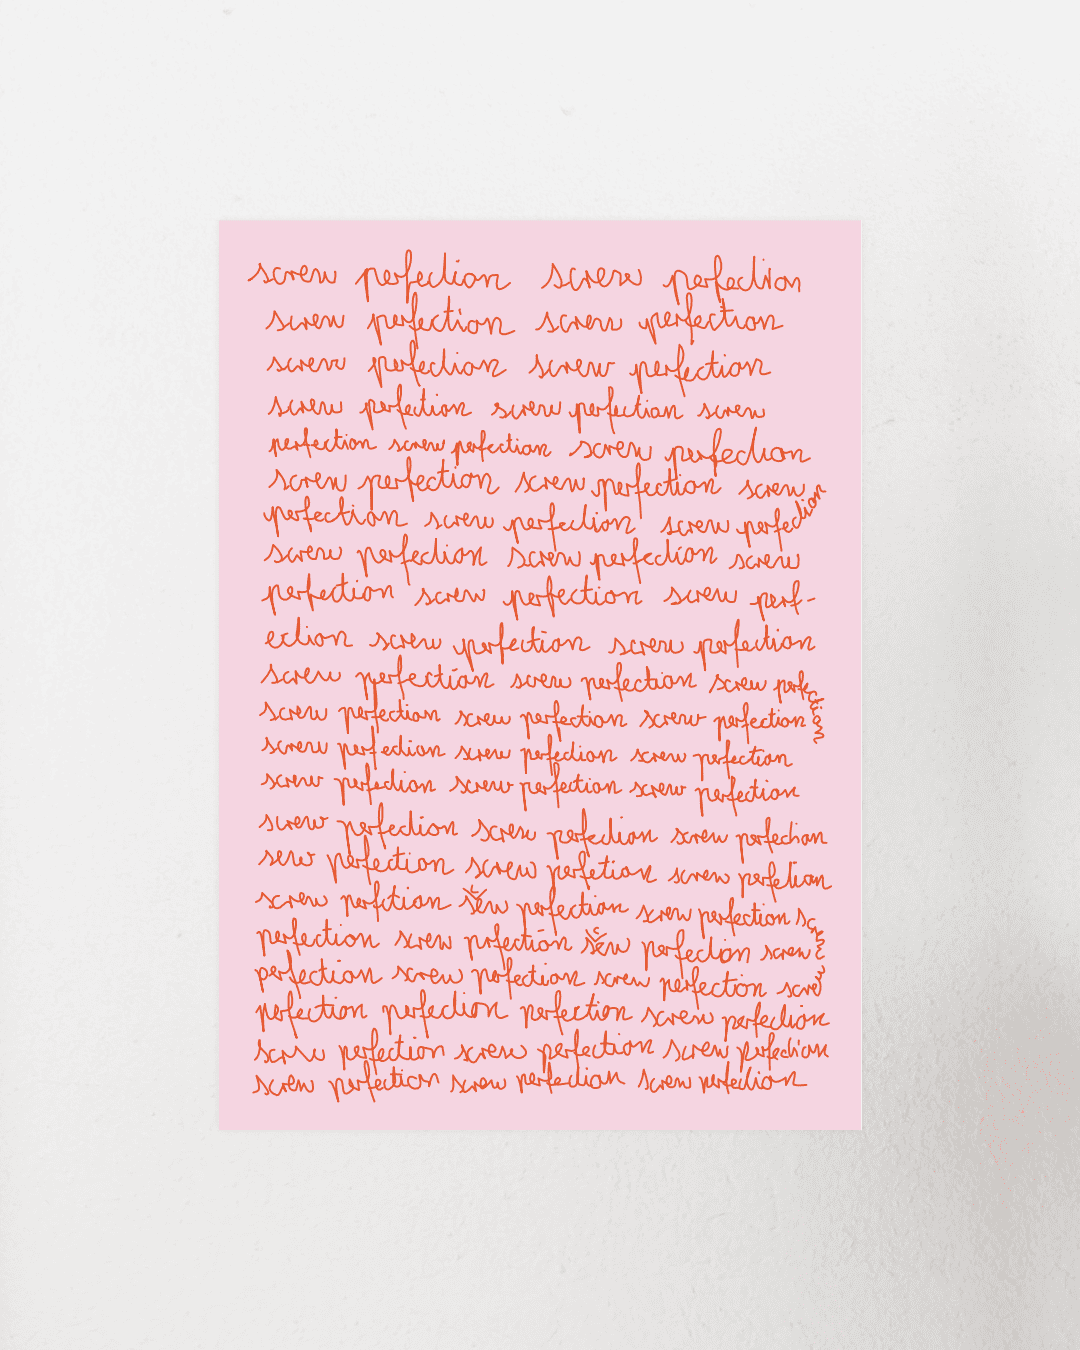 screw perfection screw perfection
screw perfection screw perfection
screw perfection screw perfection
screw perfection screw perfection screw
perfection screw perfection screw perfection
screw perfection screw perfection screw
perfection screw perfection screw perfection
screw perfection screw perfection screw
perfection screw perfection screw perf-
ection screw perfection screw perfection
screw perfection screw perfection screw perfection
screw perfection screw perfection screw perfection
screw perfection screw perfection screw perfection
screw perfection screw perfection screw perfection
screw perfection screw perfection screw perfection
serw perfection screw perfetion screw perfetion
screw perfrtion screw perfection screw perfection screw
perfection screw prfection screw perfection screw
perfection screw perfection screw perfection screw
perfection perfection perfection screw perfection
screw perfection screw perfection screw perfection
screw perfection screw perfection screw perfection